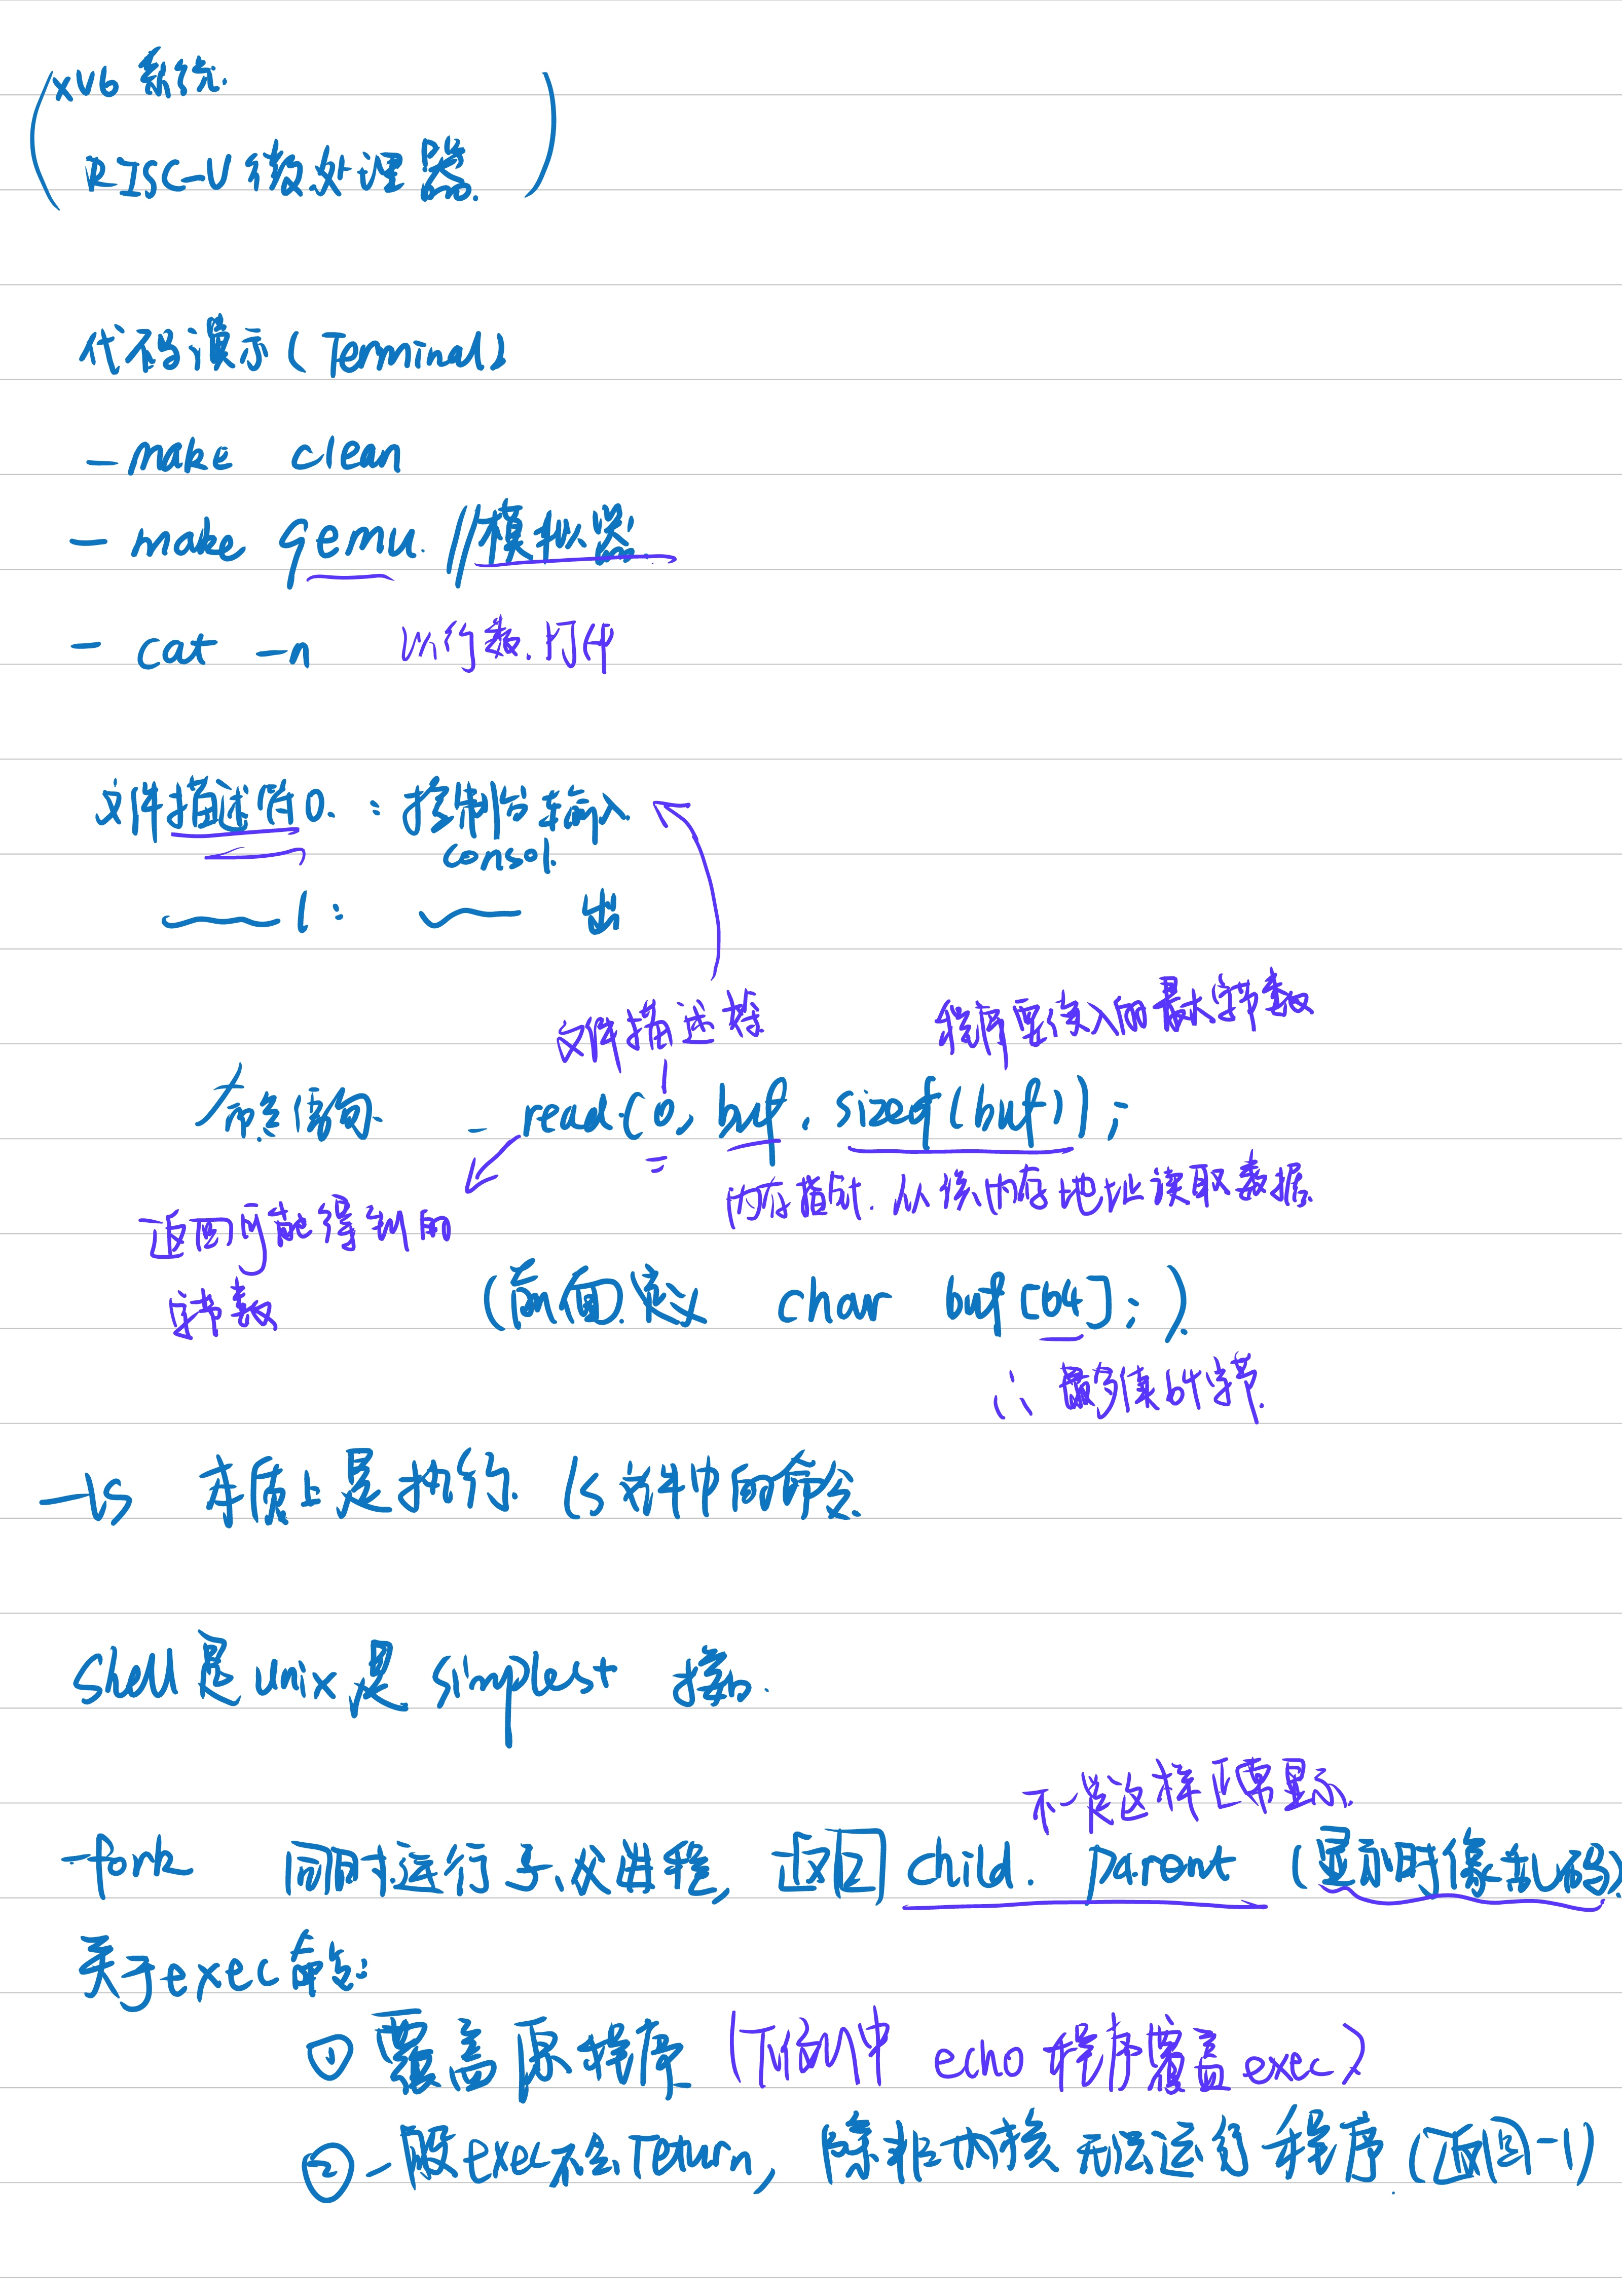 xv6 系统.
RISC-V 微处理器.
代码演示 (Terminal)
— make clean
— make qemu. //模拟器.
— cat -n 以行数.打印
文件描述符0. : 控制台输入.
consol.
1 : 出
文件描述符 程序要读入的最大字节数
命令语句. — read(0, buf, sizeof(buf));
内存指针. 从该内存地址读取数据.
返回可能得到的
字节数
(前面定义 char buf[64]; ).
∴ 最多读64字节.
—ls 本质上是执行. ls文件中的命令.
Shell 是 unix 是 simplest 接口.
不一定这样正常显示.
-fork 同时运行子、父进程, 返回 child. parent (显示时像乱码)
关于exec命令:
① 覆盖原程序 (下例中 echo 程序覆盖 exec)
② 一般exec不会return, 除非内核无法运行程序. (返回-1)